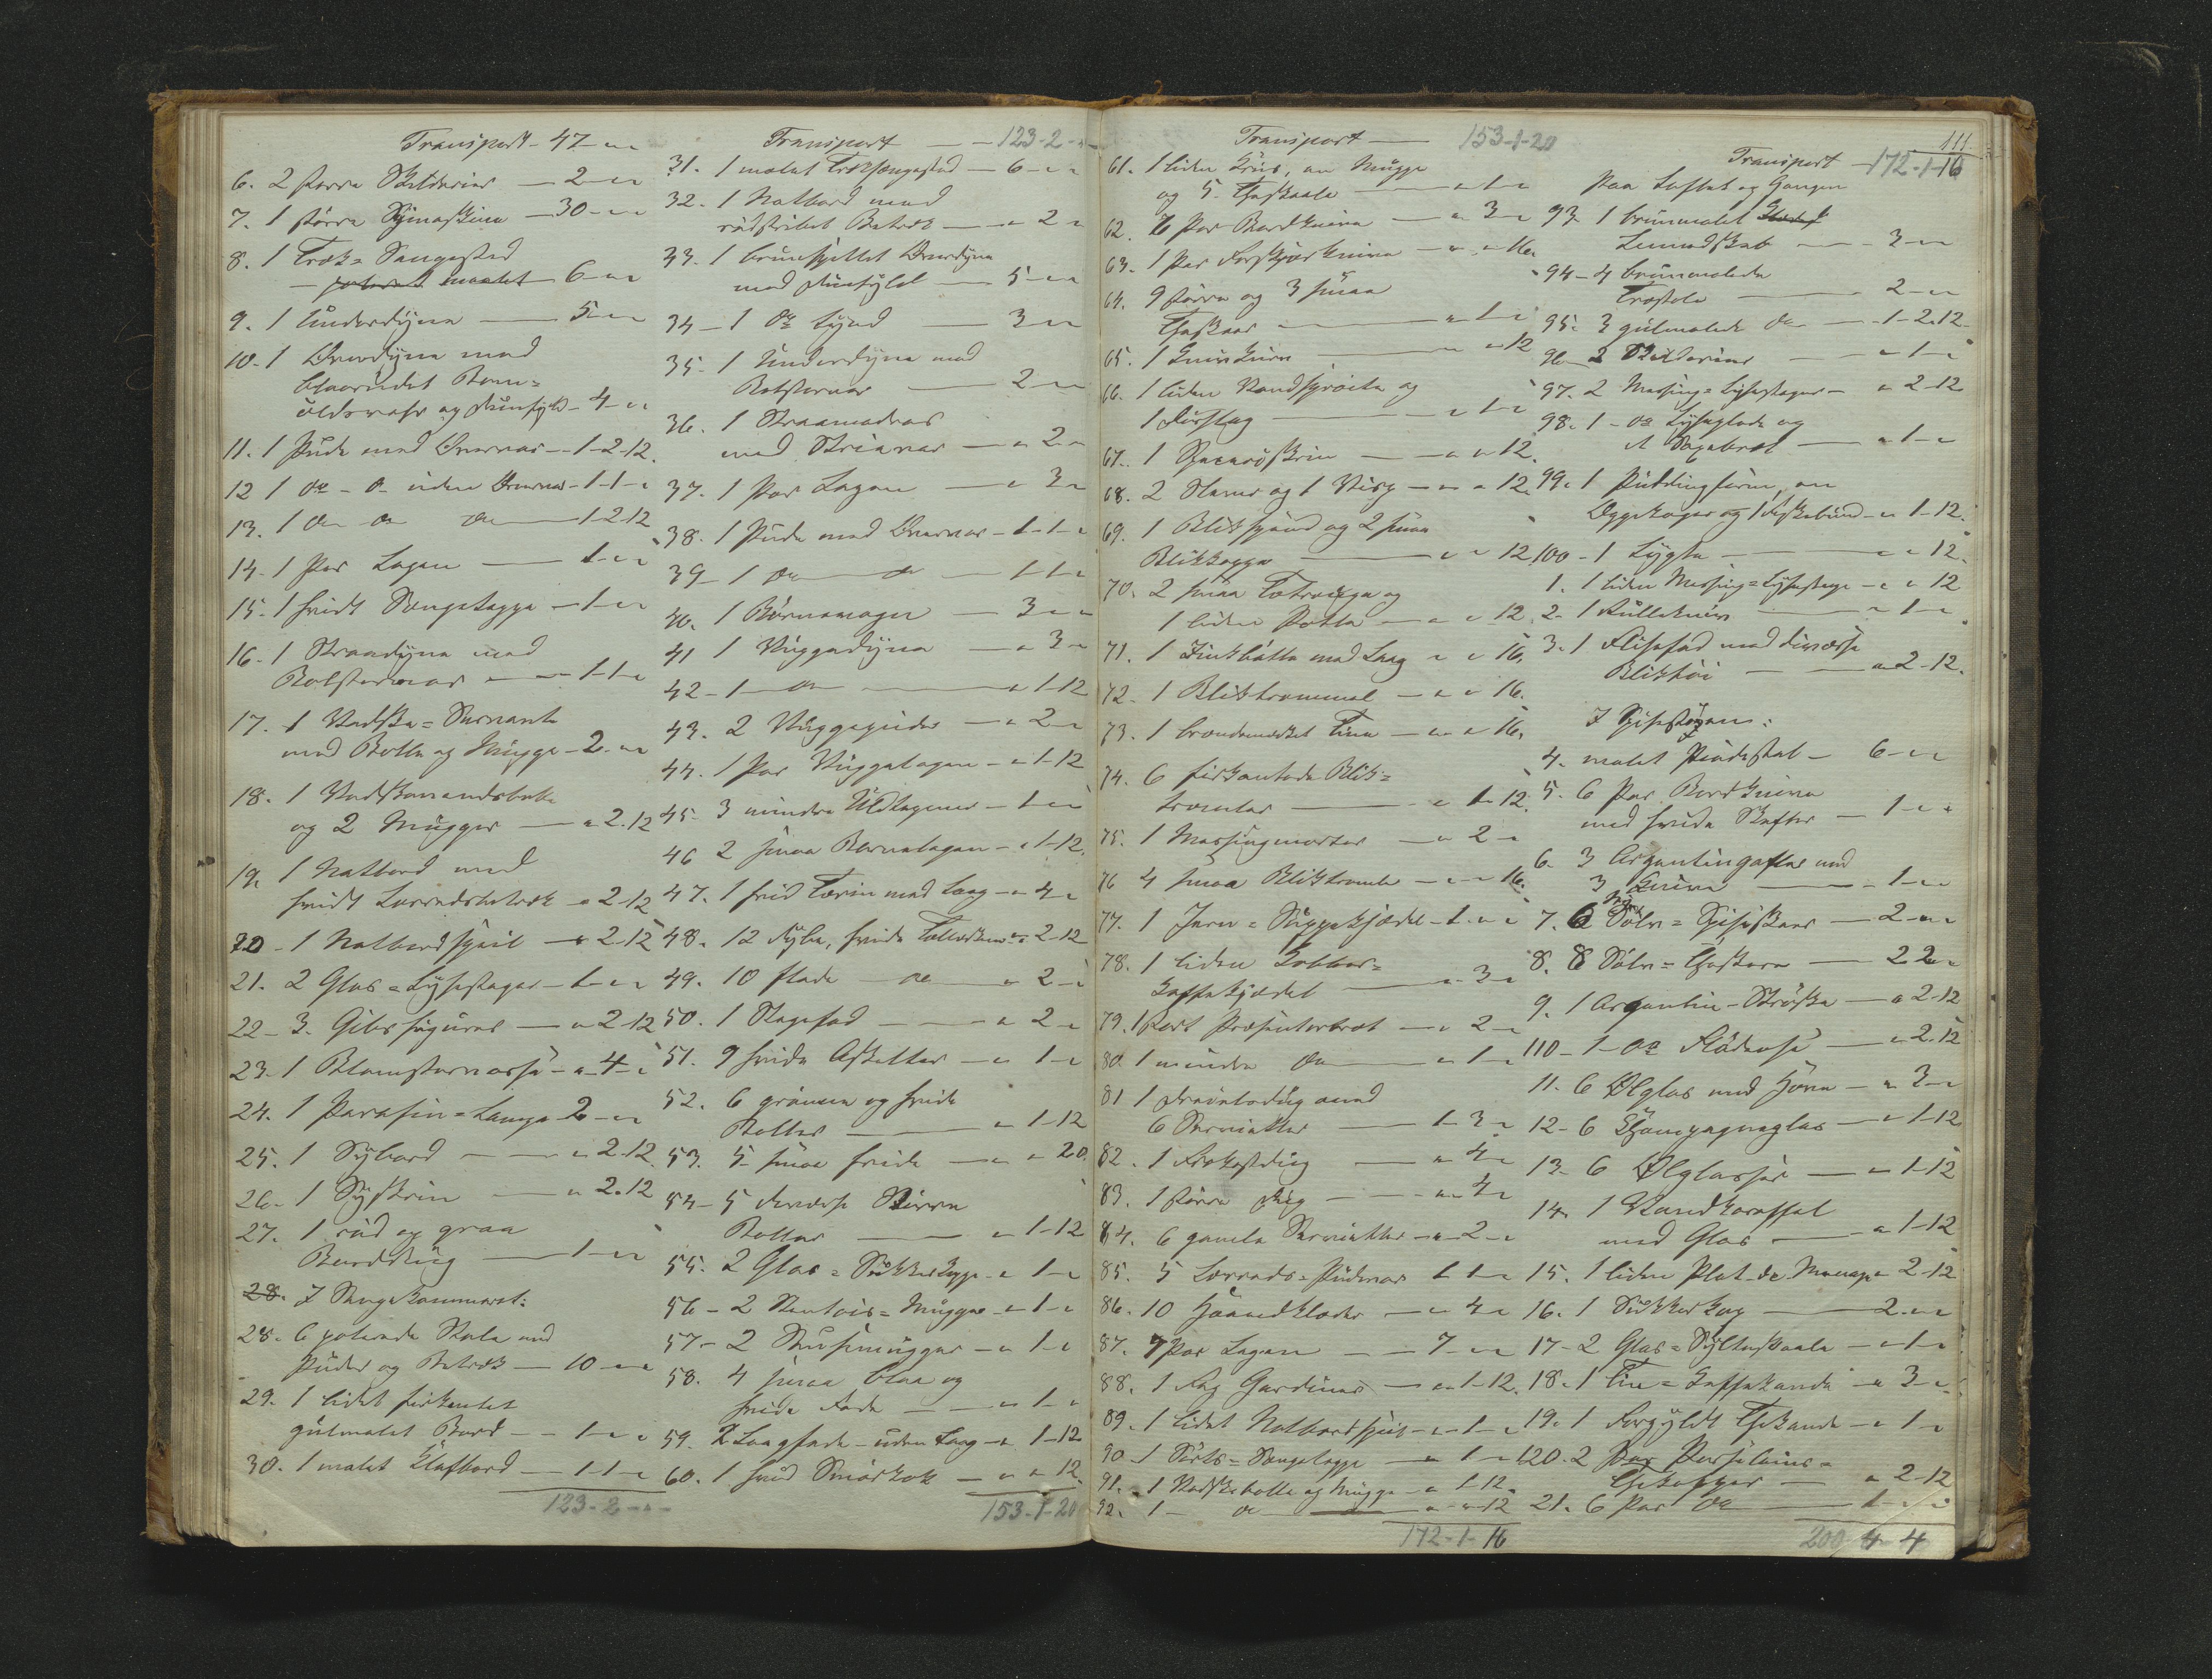 Transport - 47 - " "
6. 2 større Skilderier — 2 - " "
7. 1 større Symaskine — 30 - " "
8. 1 Træk = Sengested
— maalet — 6 - " "
9. 1 Underdÿne — 5 - " "
10. 1 Overdÿne med
Bom =
uldsvaar og Duunfyld - 4 - " "
11. 1 Pude med Overvaar - 1 - 2 - 12
12 1 do - do uden Overvaar - 1 - 1 - "
13. 1 do do do — 1 - 2 - 12
14. 1 Par Lagen — 1 - " "
15. 1 hvidt Sengetæppe — 1 - " "
16. 1 Straadÿne med
Bolstervaar — 1 - 1 - "
17. 1 Vadske = Servante
med Bolle og Mugge - 2 - " "
18. 1 Vadskevandsbøtte
og 2 Mugger — " 2 - 12
19. 1 Natbord med
hvidt Lærredsbetræk - " 2 - 12
20 - 1 Natbordspeil — " 2 - 12
21. 2 Glas = Lysestager - 1 - " "
22 - 3 Gibsfigurer — " 2 - 12
23. 1 Blomstervase - " 4 - "
24. 1 Parafin = Lampe 2 - " "
25. 1 Sÿbord — " 2 - 12
26. 1 Sÿskrin — " 2 - 12
27. 1 rød og graa
Borddug — 1 - " "
28. I Sengekammeret:
28. 6 polerede Stole med
Puder og Betræk — 10 - " "
29. 1 lidet firkantet
gulmalet Bord — 1 - " "
30. 1 malet Klafbord — 1 - 1 - "
123 - 2 - " -
Transport — 123 - 2 - " -
31. 1 malet Træksengested — 6 - " "
32. 1 Natbord med
rødstribet Betræk — " 2 "
33. 1 Overdÿne
med Duunfyld — 5 - " "
34 - 1 do — 3 - " "
35. 1 Underdÿne med
Bolstervaar — 2 - " "
36. 1 Straamadras
med Strievaar — " 2 - "
37. 1 Par Lagen — " 3 - "
38. 1 Pude med Overvaar - 1 - 1 - "
39 - 1 do — do — 1 - 1 - "
40. 1 Børnevogn — 3 - " "
41 1 Vuggedÿne — " 3 - "
42 - 1 — do — " 1 - 12
43. 2 Vuggepuder — " 2 - "
44. 1 Par Vuggelagen — " 1 - 12
45. 3 mindre Uldlagener — 1 - " "
46 2 smaa Børnelagen - " 1 - 12
47. 1 hvid Terin med Laag - " 4 - "
48. 12 dybe, hvide Tallerkener " 2 - 12
49. 10 flade — do — " 2 - "
50. 1 Stegefad — " 2 - "
51. 9 hvide Asjetter — " 1 - "
52. 6 grønne og hvide
Boller — " 1 - 12
53. 5 smaa hvide — " " 20
54 - 5 diverse større
Boller — " 1 - 12
55. 2 Glas = Sukkerkopper - " 1 - "
56 - 2 Stentøis = Mugger - " 1 - "
57 - 2 Mugger — " 1 - "
58. 4 smaa blaa og
hvide Fade — " 1 - "
59. 2 Laagfade - uden Laag - " 1 - 12
60. 1 hvid — " " 12
153 - 1 - 20
Transport — 153 - 1 - 20
61. 1 liden Krus, en Mugge
og 5 Theskaale — " 1 - "
62. 6 Par Bordknive — " 3 - "
63. 1 Par Forskjærknive — " " 16
64. 9 større og 3 smaa
Theskeer — " 1 - "
65. 1 — " " 12
66. 1 liden Vandsprøite og
1 Dørslag — " 1 - "
67. 1 — " " 12
68. 2 og 1 Visp — " " 12
69. 1 Blikspand og 2 smaa
Blikkopper — " " 12
70. 2 smaa og
1 liden Potte — " " 12
71. 1 Zinkbøtte med Laag " " 16
72. 1 Bliktrommel — " " 16
73. 1 Tine — " " 16
74. 6 firkantede Blik =
— " 1 - 12
75. 1 Messingmorter — " 2 - "
76 4 smaa — " " 16
77. 1 Jern = Suppekjedel - 1 - " "
78. 1 liden Kobber =
Kaffekjedel — " 3 - "
79. 1 stort Præsenterbræt — " 2 - "
80. 1 mindre do — " 1 - "
81 1 med
6 Servietter — 1 - 3 - "
82. 1 Frokostdug — " 4 - "
83. 1 større Dug — " 4 "
84. 6 gamle Servietter - " 2 - "
85. 5 Lærreds = Pudevaar 1 - 1 - "
86. 10 Haandklæder — " 4 "
87. 7 Par Lagen — 7 - " "
88. 1 Fag Gardiner — " 1 - 12
89. 1 lidet Natbordspeil - " 1 - "
90 - 1 Sirts = Sengetæppe — " 1 - "
91. 1 Vadskebolle og Mugge - " 1 - 12
92. 1 — do — " " 12
172 - 1 - 16
111.
Transport — 172 - 1 - 16
Paa Loftet og Gangen
93. 1 brunmalet
Linnedskab — 3 - " "
94 - 4 brunmalede
Træstole — 2 - " "
95. 3 gulmalede do — 1 - 2 - 12
96 - 2 Skilderier — " 1 - "
97. 2 Messing = Lysestager - " 2 - 12
98. 1 - do og
— " 1 - "
99. 1 Puddingform, en
Æggekoger og 1 — " 1 - 12
100 - 1 Lygte — " " 12
1. 1 liden Messing = Lysestage - " " 12
2. 1 — " 1 - "
3. 1 med diverse
Bliktøi — " 2 - 12
I Spisestuen:
4. malet — 6 - " "
5. 6 Par Bordknive
med hvide Skafter — 1 - " "
6. 3 Argentingafler med
3 Knive — 1 - " "
7. 6 Sølv = Spiseskeer — 2 - " "
8. 8 Sølv = Theskeer — 2 2 - "
9. 1 Argentin - Strøske — " 2 - 12
110 - 1 - do Flødeøse — " 2 - 12
11. 6 Ølglas med — " 3 - "
12 - 6 Champagneglas — " 1 - 12
13 - 6 Ølglasser — " 1 - 12
14. 1 Vandkaraffel
med Glas — " 1 - 12
15. 1 liden Plat de Menage 2 - 12
16. 1 Sukkerkop — 2 - " "
17 - 2 Glas = Sylteskaale — " 1 - "
18. 1 Tin = Kaffekande — " 3 - "
19. 1 Forgyldt Thekande — " 1 - "
120. 2 Par Porselains =
Thekopper — " 2 - 12
21. 6 Par do — 1 - " "
200 - 4 - 4